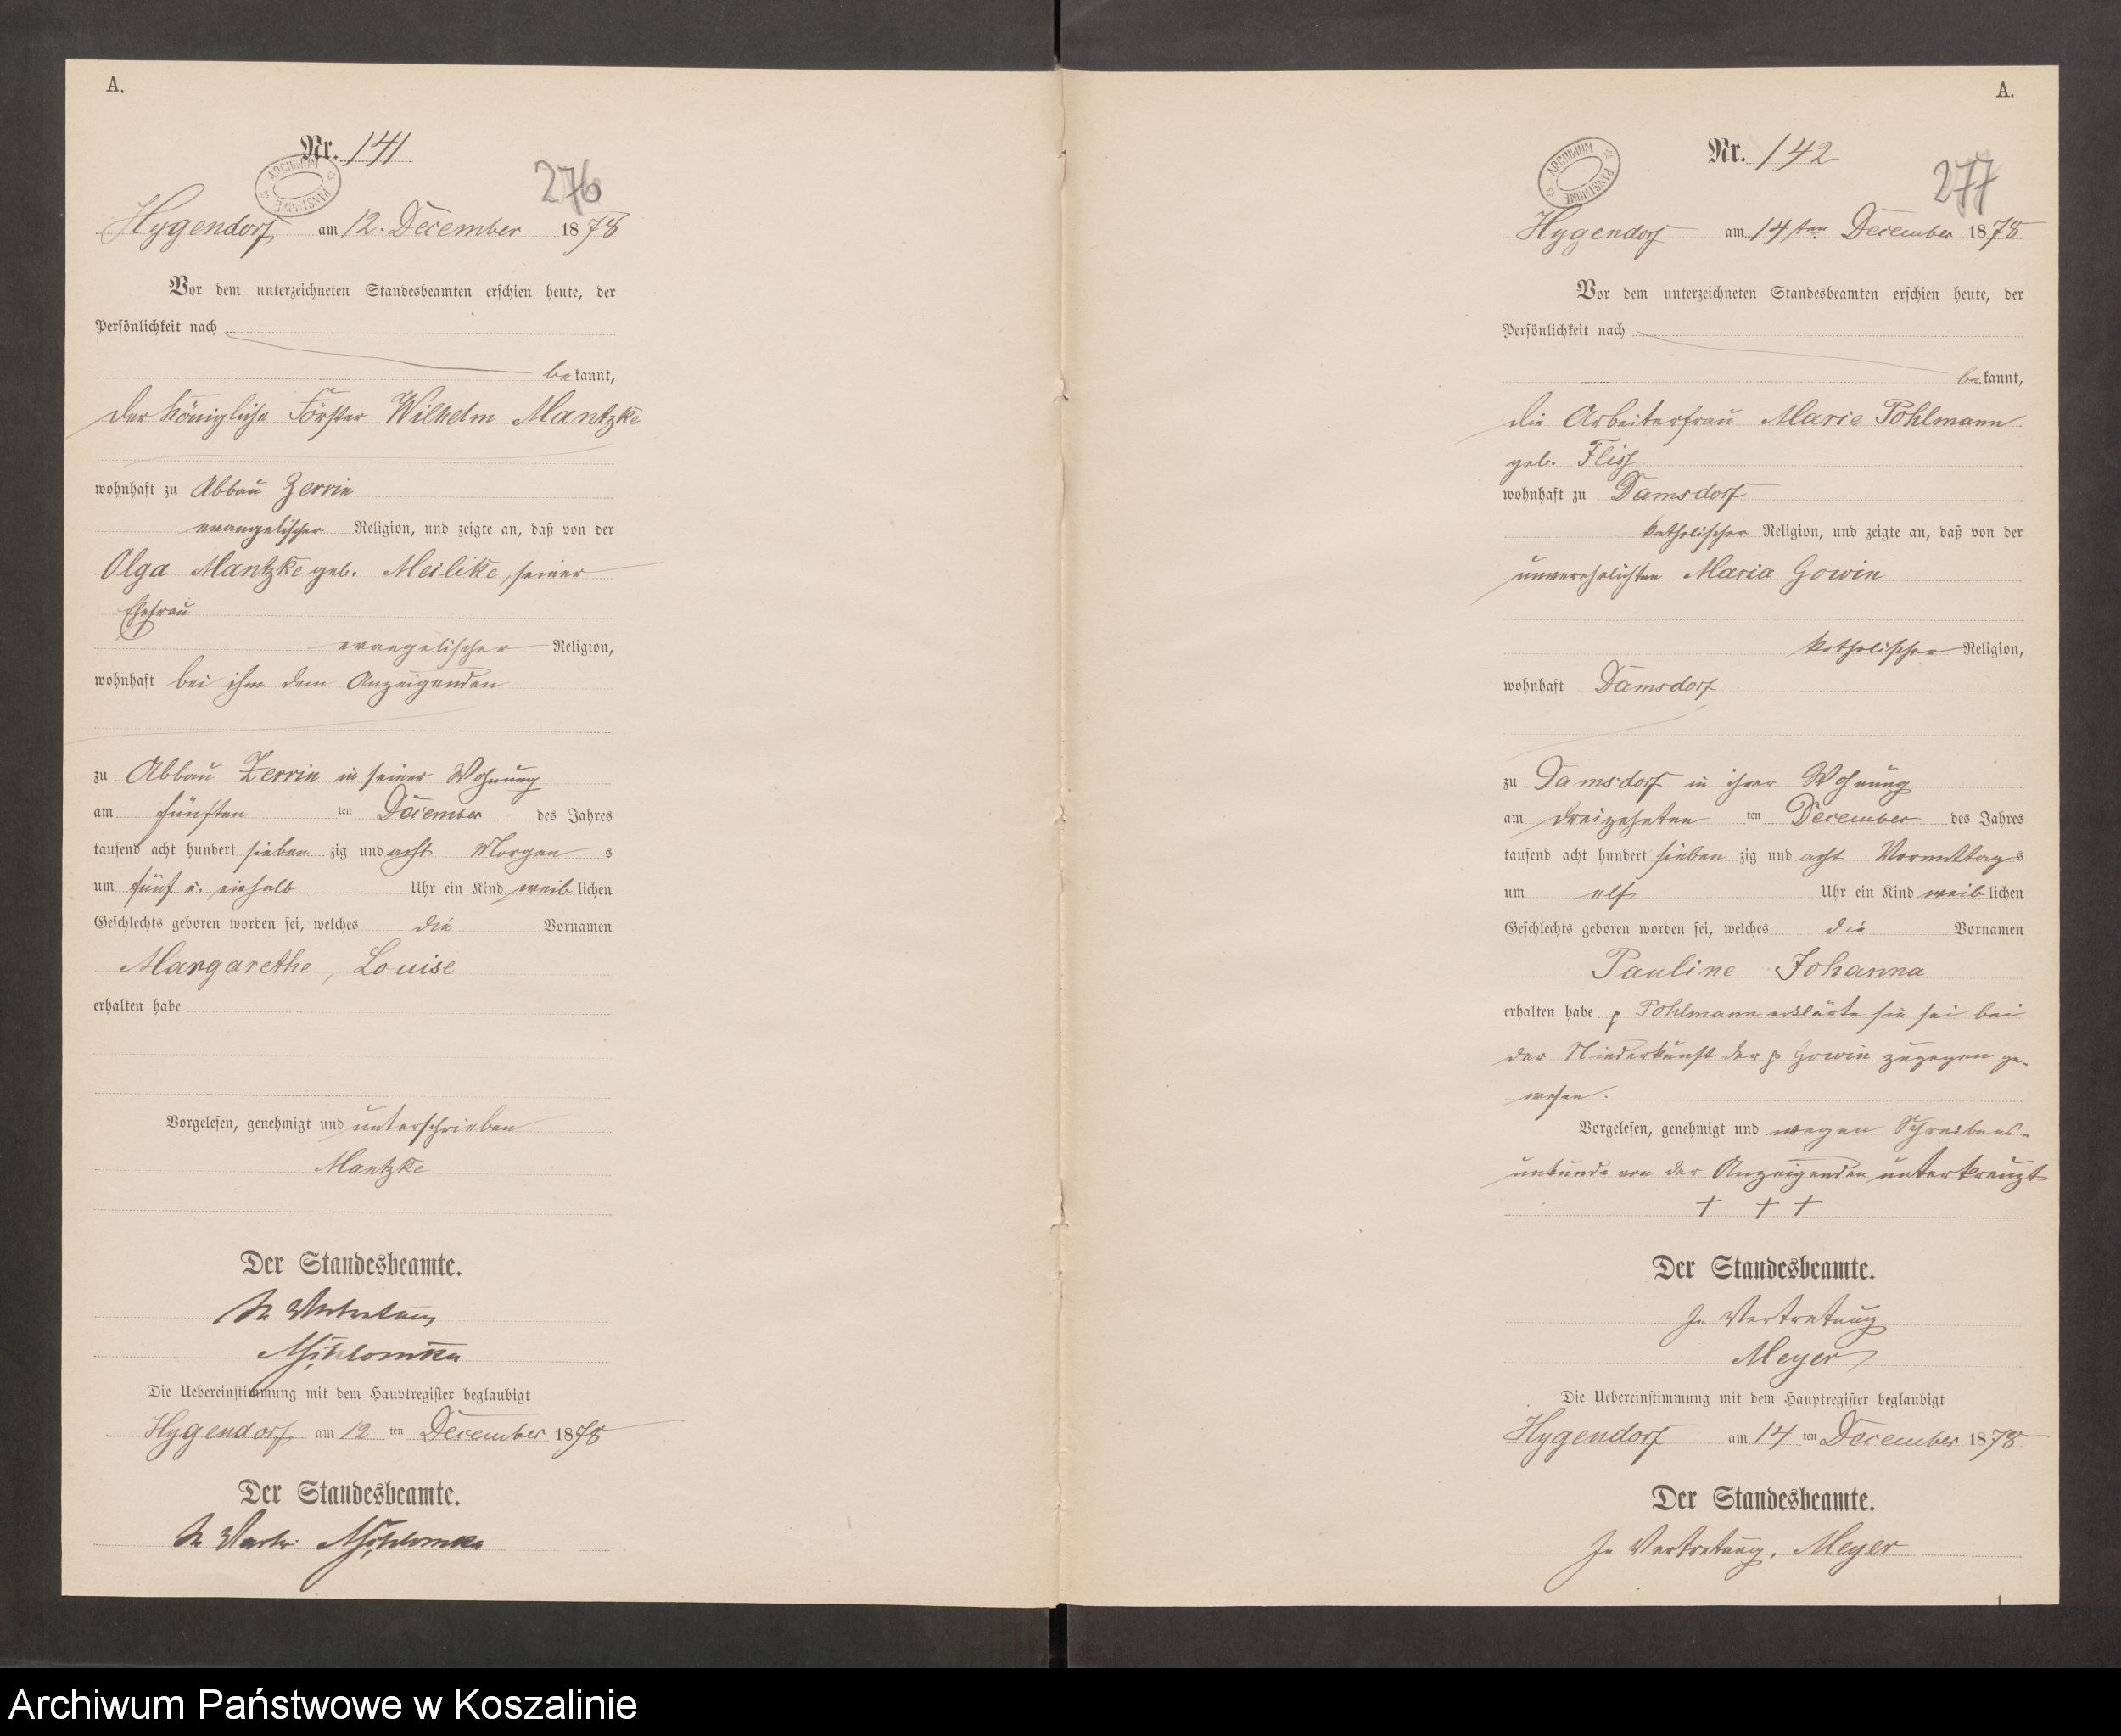 A.
Nr. 141
ARCHIWUM PAŃSTWOWE
276
Hygendorf am 12. December 1878
Vor dem unterzeichneten Standesbeamten erschien heute, der
Persönlichkeit nach
bekannt,
der Königliche Förster Wilhelm Mantzke
wohnhaft zu Abbau Zerrin
evangelischer Religion, und zeigte an, daß von der
Olga Mantzke geb. Meilike, seiner
Ehefrau
evangelischer Religion,
wohnhaft bei ihm dem Anzeigenden
zu Abbau Zerrin in seiner Wohnung
am fünften ten December des Jahres
tausend acht hundert sieben zig und acht Morgen s
um fünf u. einhalb Uhr ein Kind weib lichen
Geschlechts geboren worden sei, welches die Vornamen
Margarethe, Louise
erhalten habe
Vorgelesen, genehmigt und unterschrieben
Mantzke
Der Standesbeamte.
In Vertretung
Die Uebereinstimmung mit dem Hauptregister beglaubigt
Hygendorf am 12 ten December 1878
Der Standesbeamte.
In Vertr.
A.
Nr. 142
ARCHIWUM PAŃSTWOWE
277
Hygendorf am 14ten December 1878
Vor dem unterzeichneten Standesbeamten erschien heute, der
Persönlichkeit nach
bekannt,
die Arbeiterfrau Marie Pohlmann
geb. Fliss
wohnhaft zu Damsdorf
katholischer Religion, und zeigte an, daß von der
unverehelichten Maria Gowin
katholischer Religion,
wohnhaft Damsdorf
zu Damsdorf in ihrer Wohnung
am dreizehnten ten December des Jahres
tausend acht hundert sieben zig und acht Vormittag s
um elf Uhr ein Kind weib lichen
Geschlechts geboren worden sei, welches die Vornamen
Pauline Johanna
erhalten habe p Pohlmann erklärte sie sei bei
der Niederkunft der p Gowin zugegen ge-
wesen.
Vorgelesen, genehmigt und wegen Schreibens-
unkunde von der Anzeigenden unterkreuzt
+ + +
Der Standesbeamte.
In Vertretung
Meyer
Die Uebereinstimmung mit dem Hauptregister beglaubigt
Hygendorf am 14 ten December 1878
Der Standesbeamte.
In Vertretung, Meyer
Archiwum Państwowe w Koszalinie